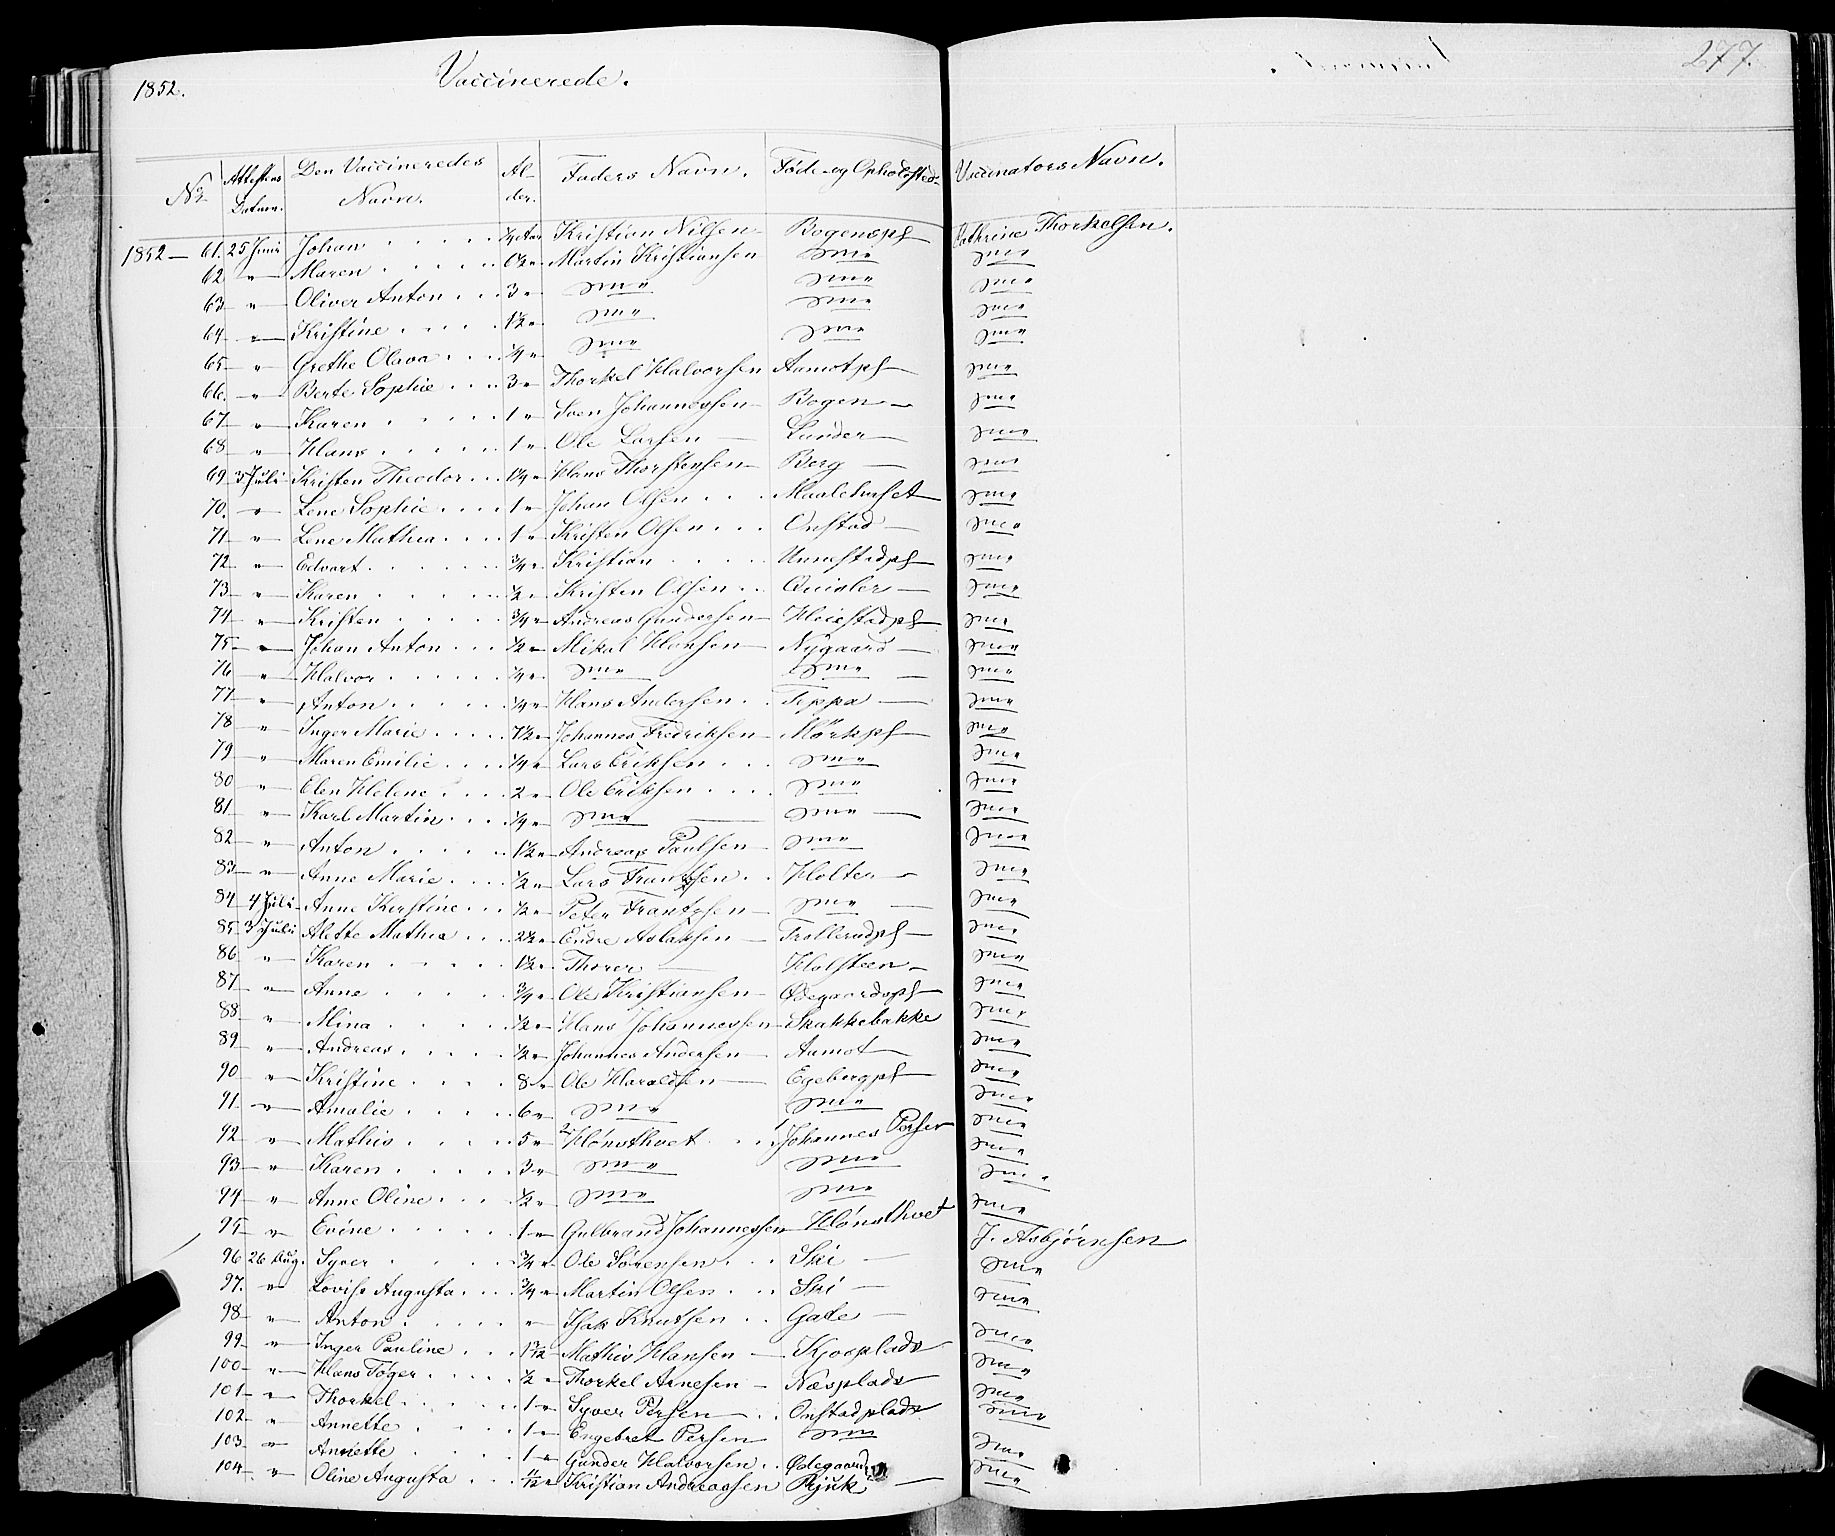 1852. Vaccinerede. 277.
No Attestens Datum. Den Vaccineredes Navn. Alder. Faders Navn. Føde- og Opholdsted Vaccinators Navn.
1852 — 61. 25 Juni Johan 1/4 Aar Kristian Nilsen Bogenspl Cathrine Thorkelsen.
62 " Maren 6 1/2 " Martin Kristiansen Dme Dme
63 " Oliver Anton 3 " Dme Dme Dme
64 " Kristine 1 1/2 " Dme Dme Dme
65 " Grethe Olava 1/4 " Dme Dme Dme
66. " Berte Sophie 3 " Thorkel Halvorsen Aamotpl Dme
67 " Karen 1 " Sven Johannessen Bogen Dme
68 " Hans 1 " Ole Larsen Lunder Dme
69 3 Juli Kristen Theodor 1 1/4 " Hans Thorstensen Berg Dme
70. " Lene Sophie 1 " Johan Olsen Maalehuset Dme
71 " Lene Mathea 1 " Kristen Olsen Onstad Dme
72 " Edvart 3/4 " Kristian Unnestadpl Dme
73 " Karen 1/2 " Kristen Olsen Quisler Dme
74 " Kristen 3/4 " Andreas Gundersen Heiestadpl Dme
75 " Johan Anton 1/2 " Mikal Hansen Nygaard Dme
76 " Halvor 1/4 " Dme Dme Dme
77 " Anton 1/4 " Hans Andersen Teppa Dme
78 " Inger Marie 7 1/2 " Johannes Fredriksen Mørkpl Dme
79 " Maren Emilie 1/4 " Lars Eriksen Dme Dme
80 " Elen Helene 2 " Ole Eriksen Dme Dme
81 " Karl Martin 1/4 " Dme Dme Dme
82 " Anton 1 1/2 " Andreas Paulsen Dme Dme
83 " Anne Marie 1/2 " Lars Frantzsen Holter Dme
84 4 Juli Anne Kerstine 1/2 " Peter Frantzsen Dme Dme
85 3 Juli Alette Mathea 2 1/2 " Endre Aslaksen Trollerudpl Dme
86 " Karen 1 1/2 " Thorer Holsteen Dme
87 " Anne 3/4 " Ole Kristiansen Ødegaardspl Dme
88 " Mina 1/2 " Hans Johannessen Skakkebakke Dme
89 " Andreas 1/2 " Johannes Andersen Aamot Dme
90 " Kristine 8 " Ole Haraldsen Egebergpl Dme
91 " Amalie 6 " Dme Dme Dme
92 " Mathis 5 " 2 Hønsthvet 1 Johannes Persen Dme
93 " Karen 3 " Dme Dme Dme
94 " Anne Oline 1/2 " Dme Dme Dme
95 " Evine 1 " Gulbrand Johannessen Hønsthvet Dme
96 26 Aug. Syver 3/4 " Ole Sørensen Ski J. Asbjørnsen
97. " Lovise Augusta 3/4 " Martin Olsen Ski Dme
98 " Anton " Isak Knutsen Gade Dme
99 " Inger Pauline Mathis Hansen Kjosplads Dme
100 " Hans Tøger 1/2 " Thorkel Arnesen Næsplads Dme
101 " Thorkel 1 " Syver Persen Onstadplads Dme
102 " Annette 1 " Engebret Persen Dme Dme
103 " Annette 1 " Gunder Halvorsen Ødegaard Dme
104 " Oline Augusta Kristian Andreassen Rjuk Dme